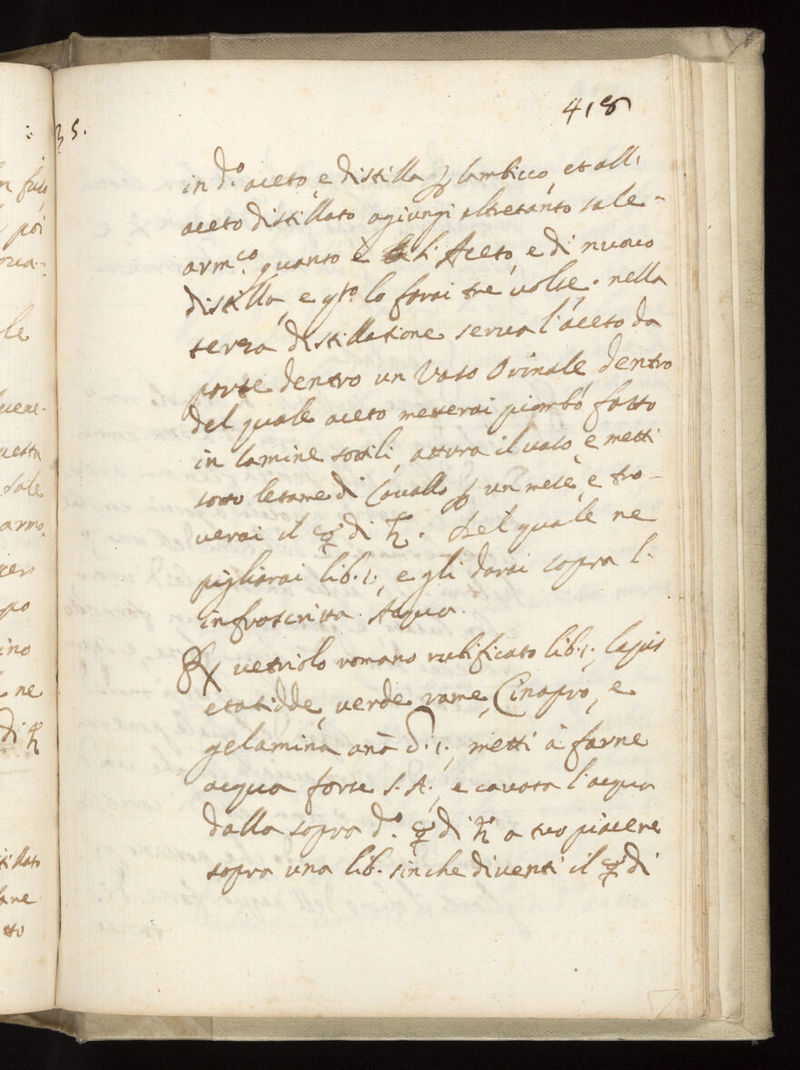 418
35.
in d.o aceto, e distilla p lambicco, et all'
aceto distillato agiungi altretanto sale
arm.co quanto è l'Aceto, e di nuovo
distilla, e q.to lo farai tre volte. nella
terza distillatione serva l'aceto da
parte dentro un Vaso Orinale, dentro
del quale aceto metterai piombo fatto
in lamine sottili, attura il vaso, e metti
sotto letame di Cavallo p un mese, e tro-
verai il ☿ di ♄. Del quale ne
pigliarai lib. 1., e gli darai sopra l'
infrascritta Acqua.
℞ vetriolo romano rubificato lib. 1., lapis
verde rame, Cinapro, e
gelamina anã 1., metti à farne
acqua forte S.A., e cavata l'acqua
dalla sopra d.o ☿ di ♄ a tuo piacere
sopra una lib. sinche diventi il ☿ di